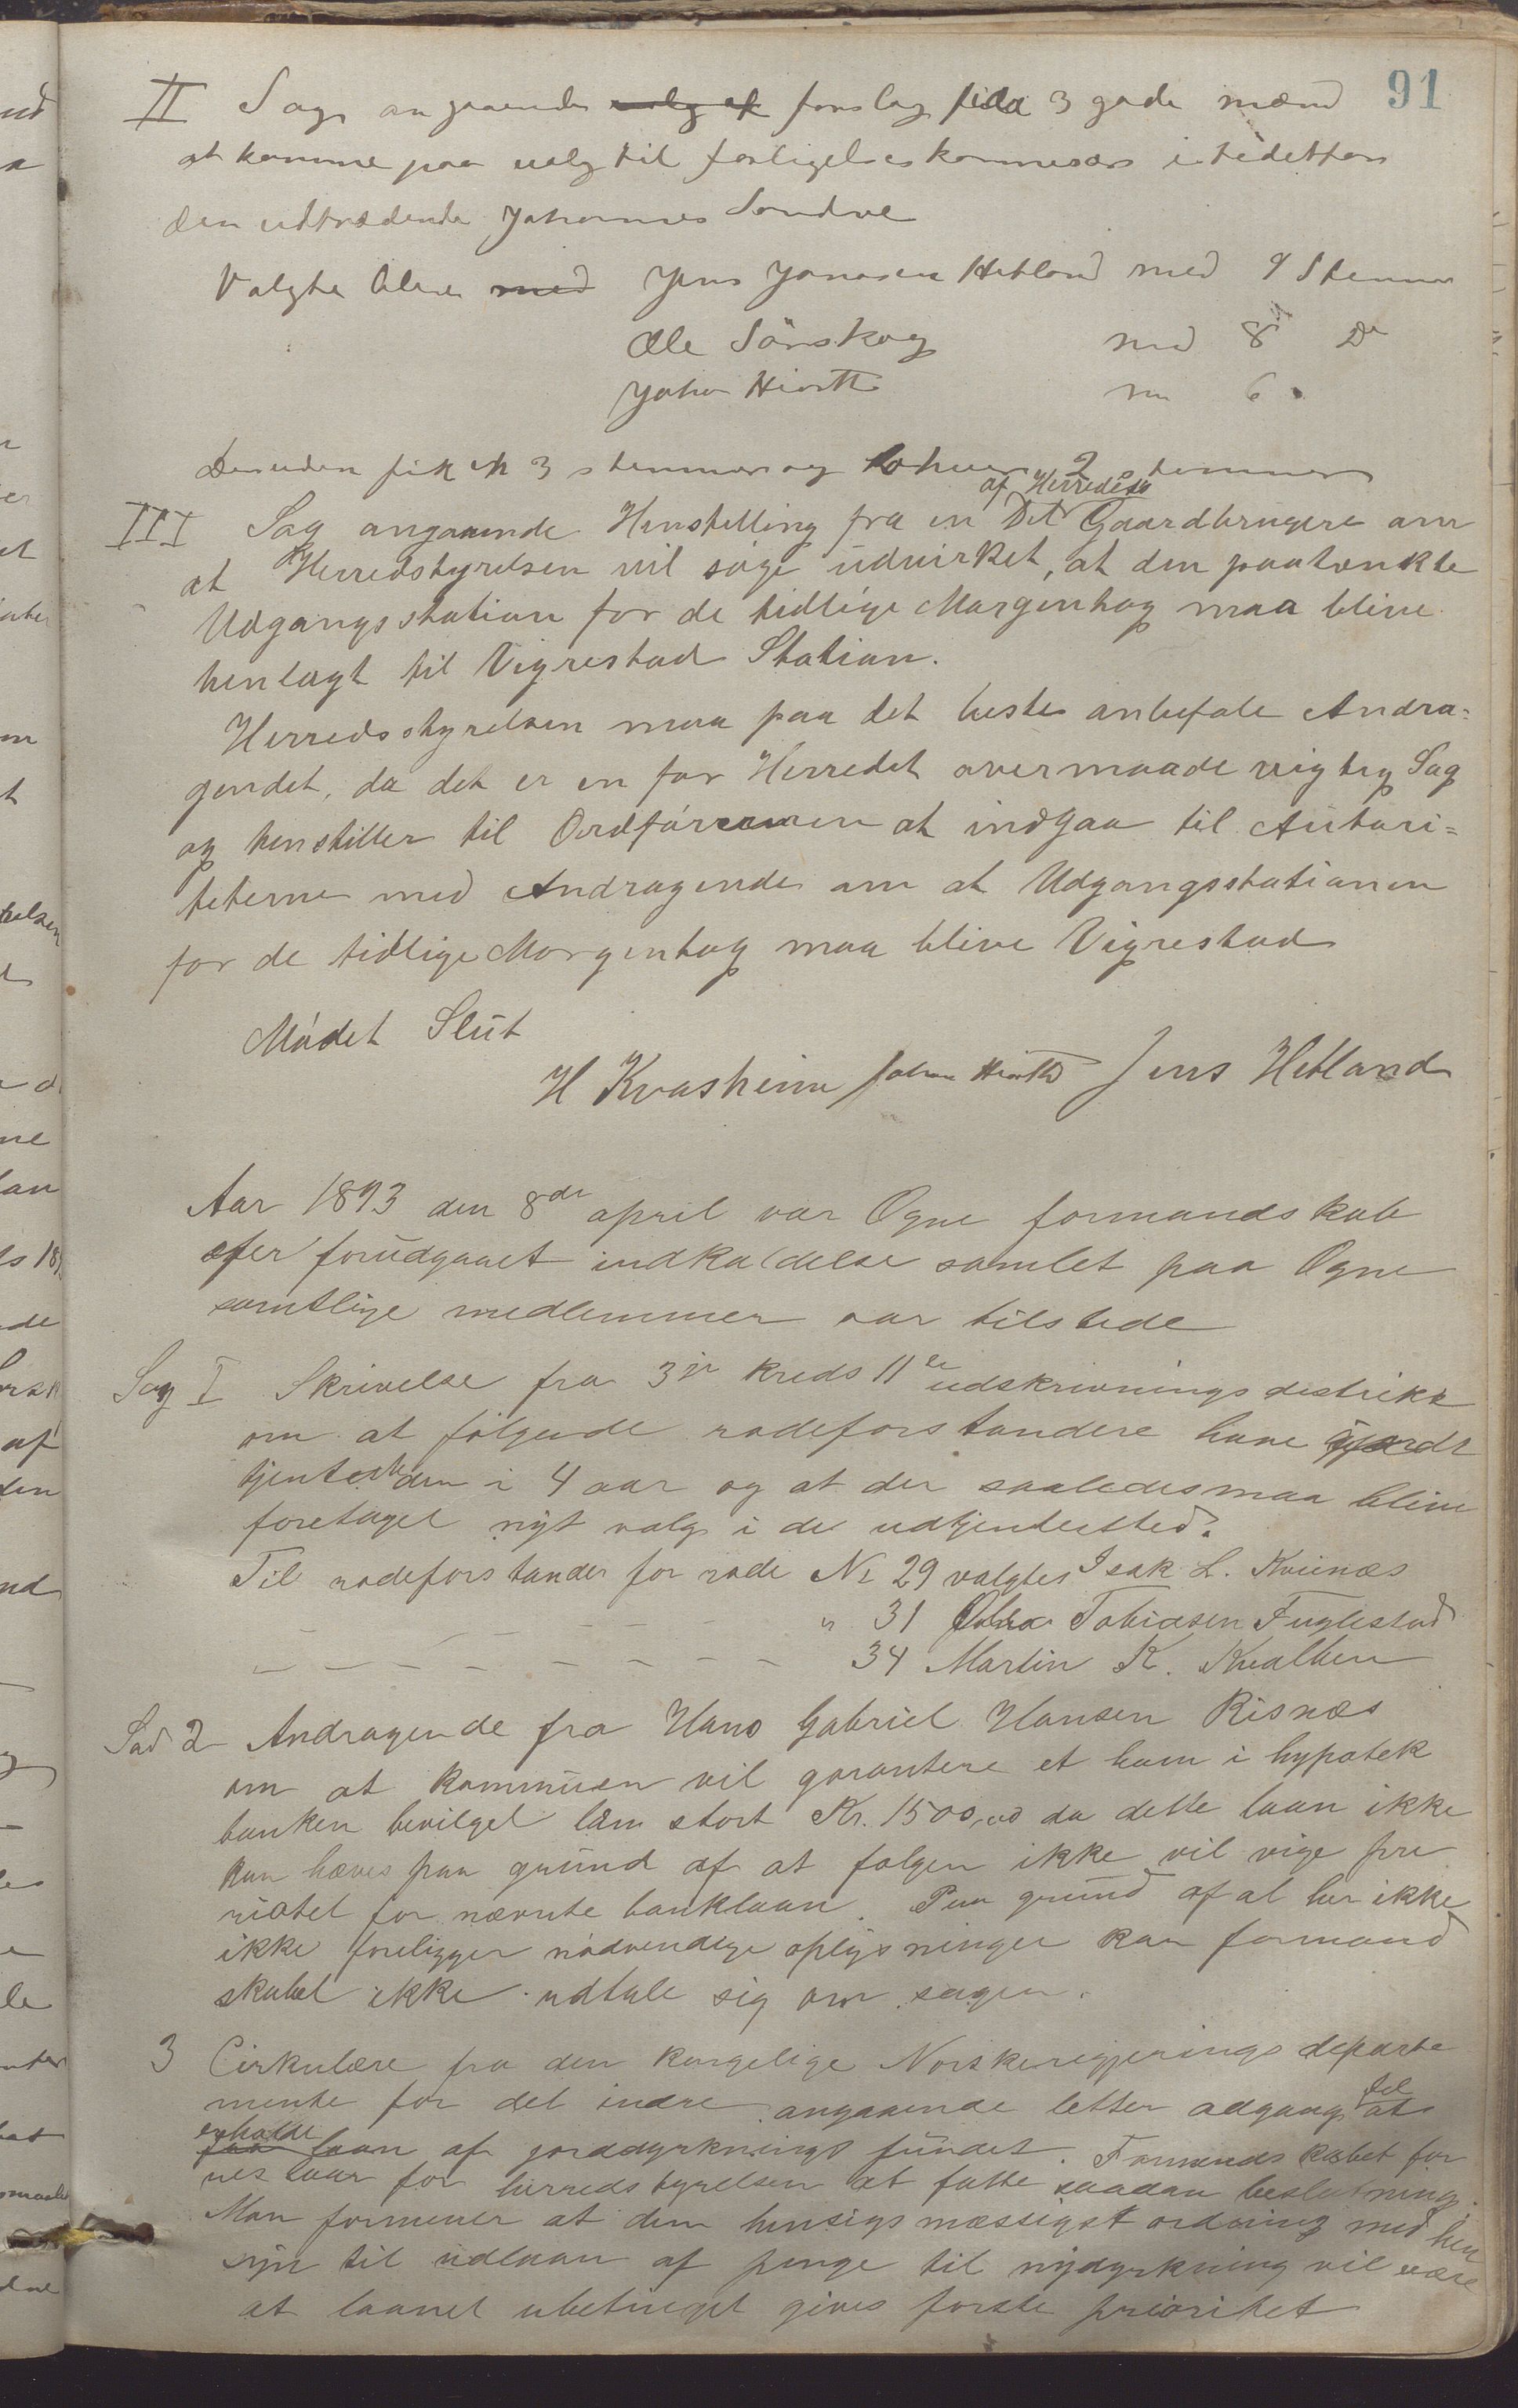 91
II Sag angaaende valg af forslag til 3 gode mænd
at komme paa valg til forligelseskommesær i stedetfor
den udtrædende Johannes Sandve
Valgte blev med Jens Jonasen Hetland med 9 Stemmer
Ole Sørskog med 8 Do
Johan Hiorth m 6
Desuden fik en 3 stemmer og to hver 2 stemmer
III Sag angaaende Henstilling fra en Del af Herredets Gaardbrugere om
at Herredstyrelsen vil søge udvirket, at den paatænkte
Udgangsstation for de tidlige Morgentog maa blive
henlagt til Vigrestad Station.
Herredsstyrelsen maa paa det beste anbefale Andra=
gendet, da det er en for Herredet overmaade vigtig Sag
og henstiller til Ordføreren at indgaa til Autori=
teterne med Andragende om at Udgangsstationen
for de tidlige Morgentog maa blive Vigrestad
Mødet Slut
H Kvasheim Johan Hiorth Jens Hetland
Aar 1893 den 8de april var Ogne formandskab
efter forudgaaet indkaldelse samlet paa Ogne
samtlige medlemmer var tilstede
Sag I Skrivelse fra 3je kreds 11te udskrivningsdistrikt
om at følgende rodeforstandere have gjordt
tjeneste den i 4 aar og at der saaledes maa blive
foretaget nyt valg i de udtjentes sted.
Til rodeforstander for rode No 29 valgtes Isak L. Kvinæs
" 31 Tobiasen Fuglestad
34 Martin K. Kvalben
Sad 2 Andragende fra Hans Gabriel Hansen Risnæs
om at kommunen vil garantere et ham i hypotek
banken bevilget laan stort Kr. 1500,00 da dette laan ikke
kan hæves paa grund af at følgen ikke vil vige pre
riotet for nævnte banklaan. Paa grund af at her ikke
ikke foreligger nødvendige oplysninger kan formand
skabet ikke udtale sig om sagen.
3 Cirkulære fra den kongelige Norske regjerings departe
mente for det indre angaaende letter adgang til at
erholde faa laan af jorddyrknings fundet. Formandskabet for
res laar for herredstyrelsen at fatte saadan beslutning.
Man formener at den hensigsmæssigst ordning med hen
syn til udlaan af penge til nydyrkning vil være
at laanet ubetinget gives første prioritet